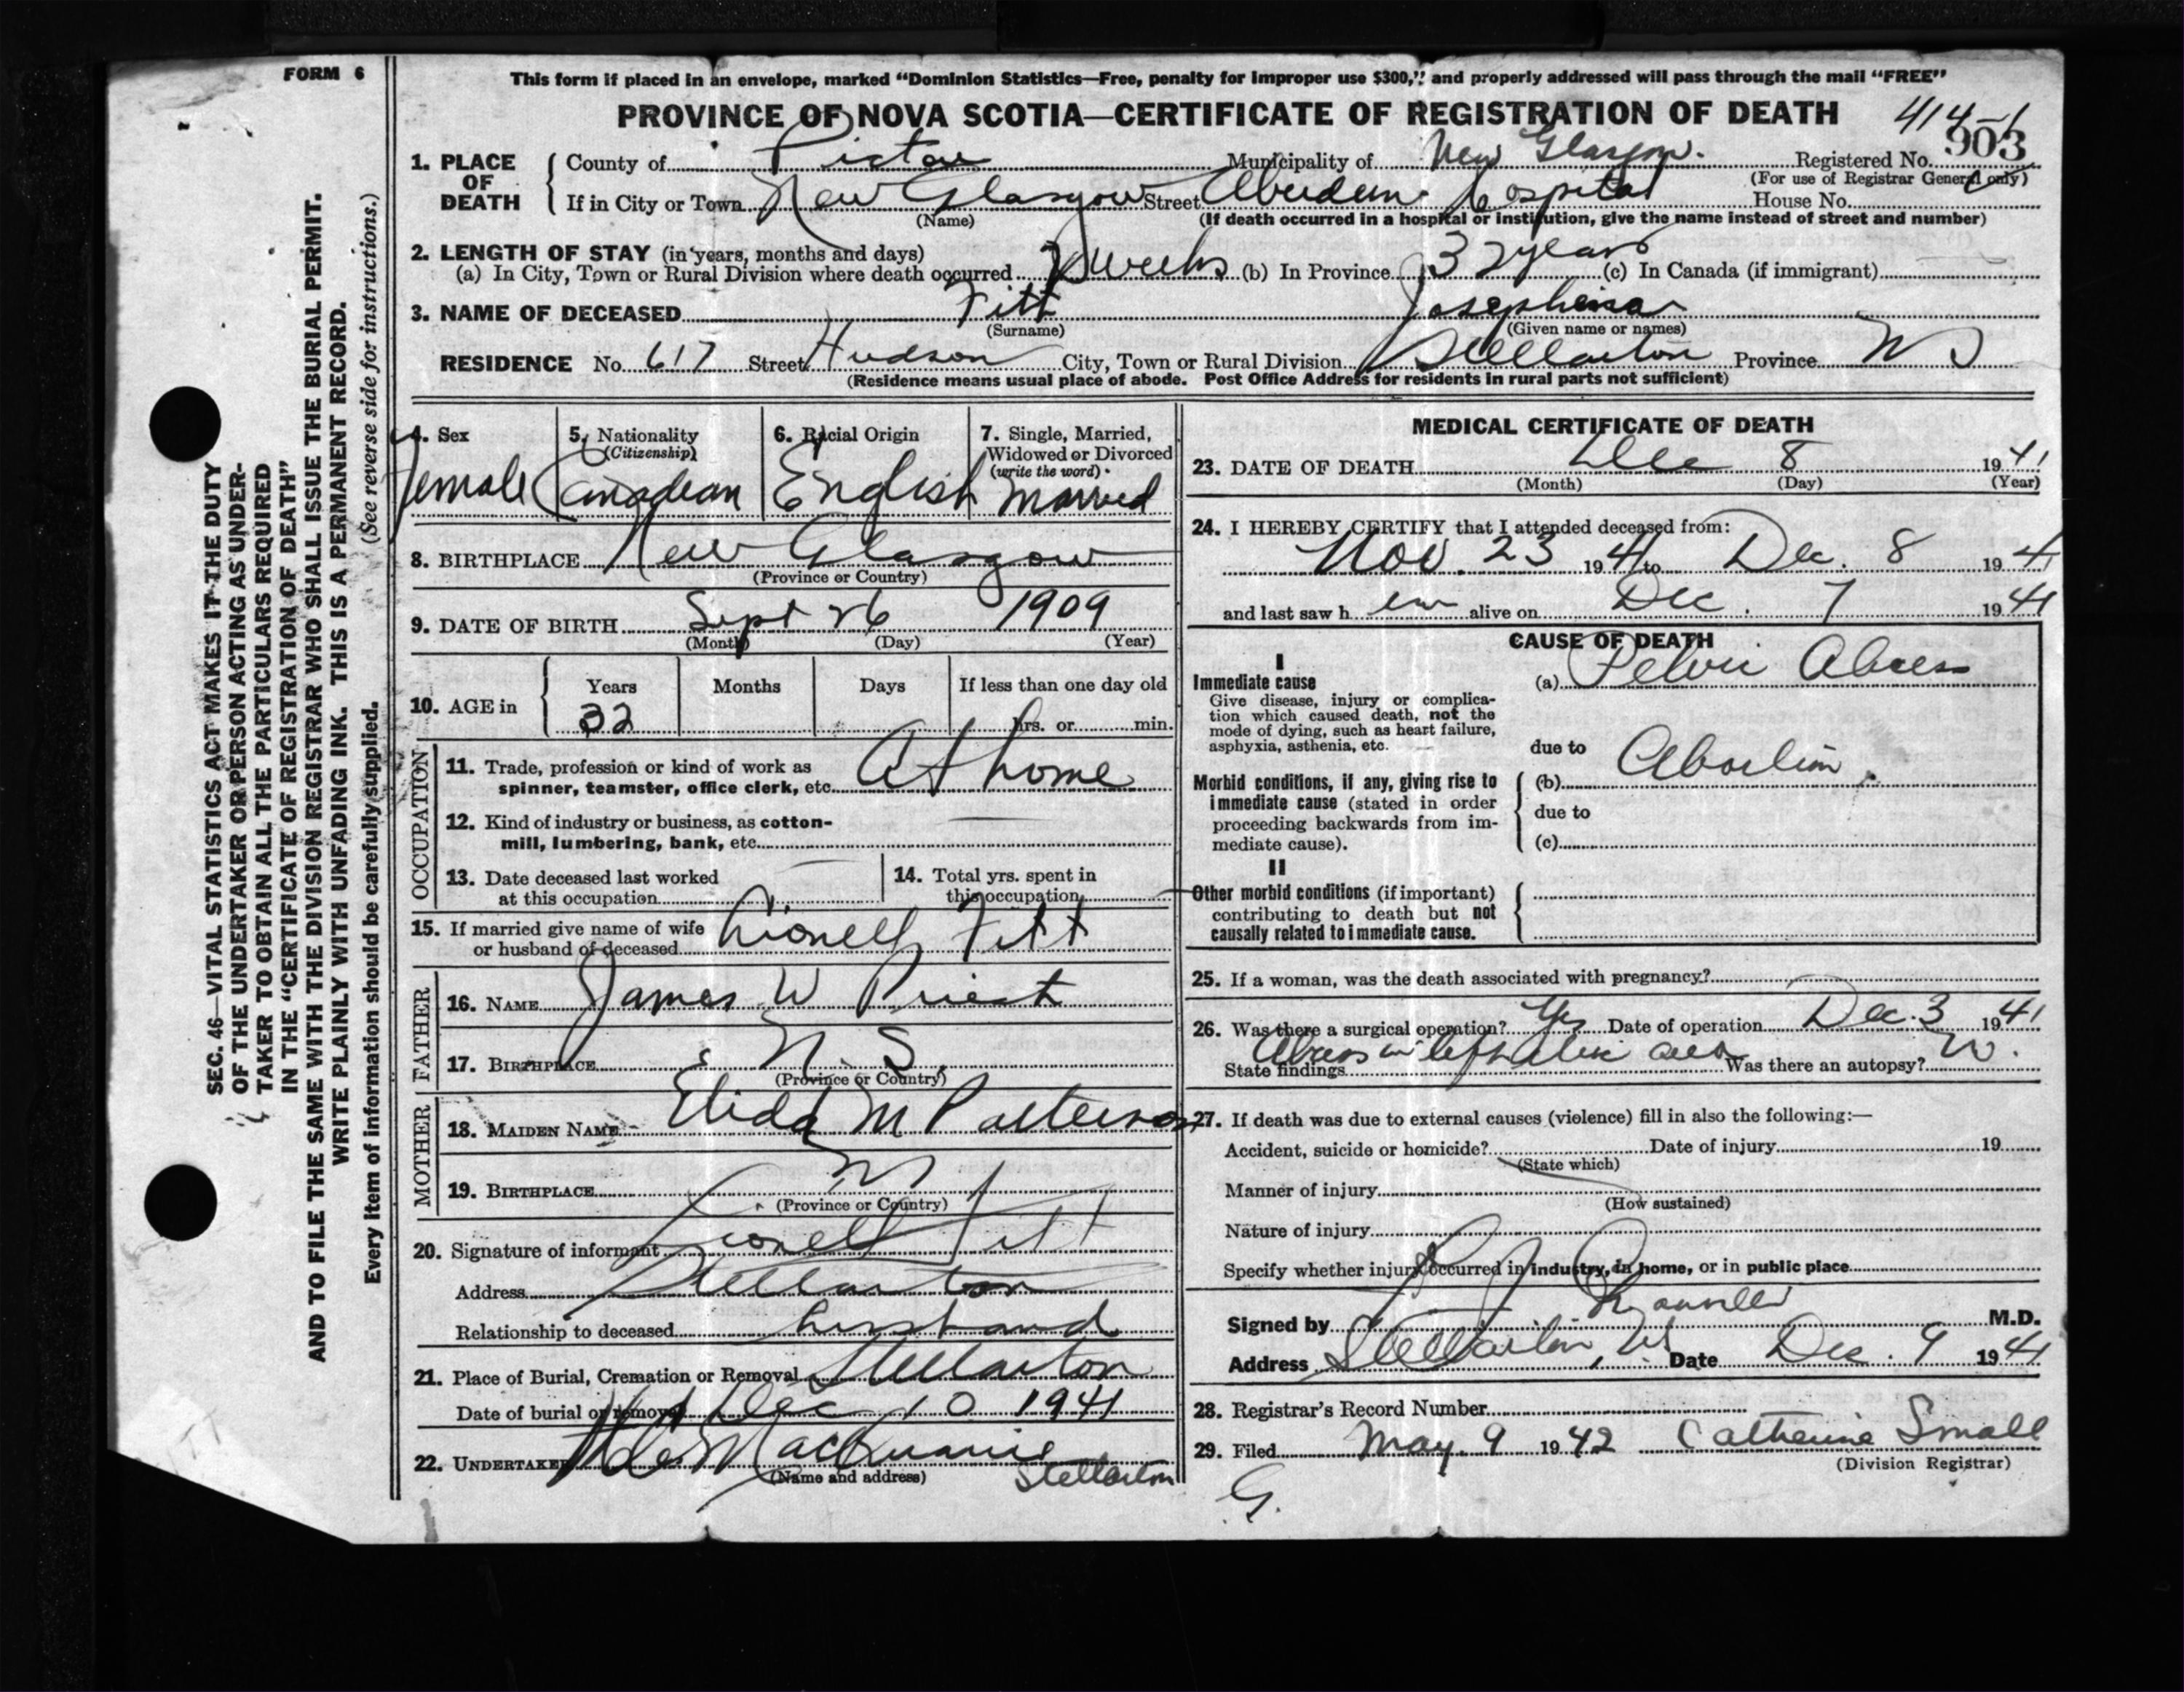 FORM 6
This form if placed in an envelope, marked "Dominion Statistics—Free, penalty for improper use $300," and properly addressed will pass through the mail "FREE"
PROVINCE OF NOVA SCOTIA—CERTIFICATE OF REGISTRATION OF DEATH
414-1
903
1. PLACE OF DEATH
County of Pictou Municipality of New Glasgow. Registered No.
(For use of Registrar General only)
If in City or Town New Glasgow Street Aberdeen Hospital House No.
(Name) (If death occurred in a hospital or institution, give the name instead of street and number)
2. LENGTH OF STAY (in years, months and days)
(a) In City, Town or Rural Division where death occurred 2 weeks (b) In Province 32 years (c) In Canada (if immigrant)
3. NAME OF DECEASED Fitt Josephine
(Surname) (Given name or names)
RESIDENCE No. 617 Street Hudson City, Town or Rural Division Stellarton Province NS
(Residence means usual place of abode. Post Office Address for residents in rural parts not sufficient)
4. Sex
female
5. Nationality
(Citizenship)
Canadian
6. Racial Origin
English
7. Single, Married, Widowed or Divorced
(write the word)
married
8. BIRTHPLACE New Glasgow
(Province or Country)
9. DATE OF BIRTH Sept 26 1909
(Month) (Day) (Year)
10. AGE in
Years Months Days If less than one day old
32 hrs. or min.
OCCUPATION
11. Trade, profession or kind of work as
spinner, teamster, office clerk, etc. At home
12. Kind of industry or business, as cotton-
mill, lumbering, bank, etc. —
13. Date deceased last worked
at this occupation
14. Total yrs. spent in
this occupation
15. If married give name of wife
or husband of deceased Lionell Fitt
FATHER
16. NAME James W Priest
17. BIRTHPLACE N. S.
(Province or Country)
MOTHER
18. MAIDEN NAME M Patterson
19. BIRTHPLACE NS
(Province or Country)
20. Signature of informant Lionell Fitt
Address Stellarton
Relationship to deceased husband
21. Place of Burial, Cremation or Removal Stellarton
Date of burial or removal Dec 10 1941
22. UNDERTAKER MacQuarrie
(Name and address) Stellarton
MEDICAL CERTIFICATE OF DEATH
23. DATE OF DEATH Dec 8 1941
(Month) (Day) (Year)
24. I HEREBY CERTIFY that I attended deceased from:
Nov. 23 1941 to Dec. 8 1941
and last saw h er alive on Dec. 7 1941
CAUSE OF DEATH
I
Immediate cause (a) Pelvic Abcess
Give disease, injury or complica-
tion which caused death, not the
mode of dying, such as heart failure,
asphyxia, asthenia, etc.
due to
Morbid conditions, if any, giving rise to
immediate cause (stated in order
proceeding backwards from im-
mediate cause).
(b) Abortion
due to
(c)
II
Other morbid conditions (if important)
contributing to death but not
causally related to immediate cause.
25. If a woman, was the death associated with pregnancy?
26. Was there a surgical operation? Yes Date of operation Dec. 3 1941
State findings Abcess in left area Was there an autopsy? No.
27. If death was due to external causes (violence) fill in also the following:—
Accident, suicide or homicide? Date of injury 19
(State which)
Manner of injury
(How sustained)
Nature of injury
Specify whether injury occurred in industry, in home, or in public place
Signed by M.D.
Address Stellarton, NS Date Dec. 9 1941
28. Registrar's Record Number
29. Filed May 9 1942 Catherine Small
(Division Registrar)
G.
SEC. 46—VITAL STATISTICS ACT MAKES IT THE DUTY
OF THE UNDERTAKER OR PERSON ACTING AS UNDER-
TAKER TO OBTAIN ALL THE PARTICULARS REQUIRED
IN THE "CERTIFICATE OF REGISTRATION OF DEATH"
AND TO FILE THE SAME WITH THE DIVISION REGISTRAR WHO SHALL ISSUE THE BURIAL PERMIT.
WRITE PLAINLY WITH UNFADING INK. THIS IS A PERMANENT RECORD.
Every item of information should be carefully supplied. (See reverse side for instructions.)